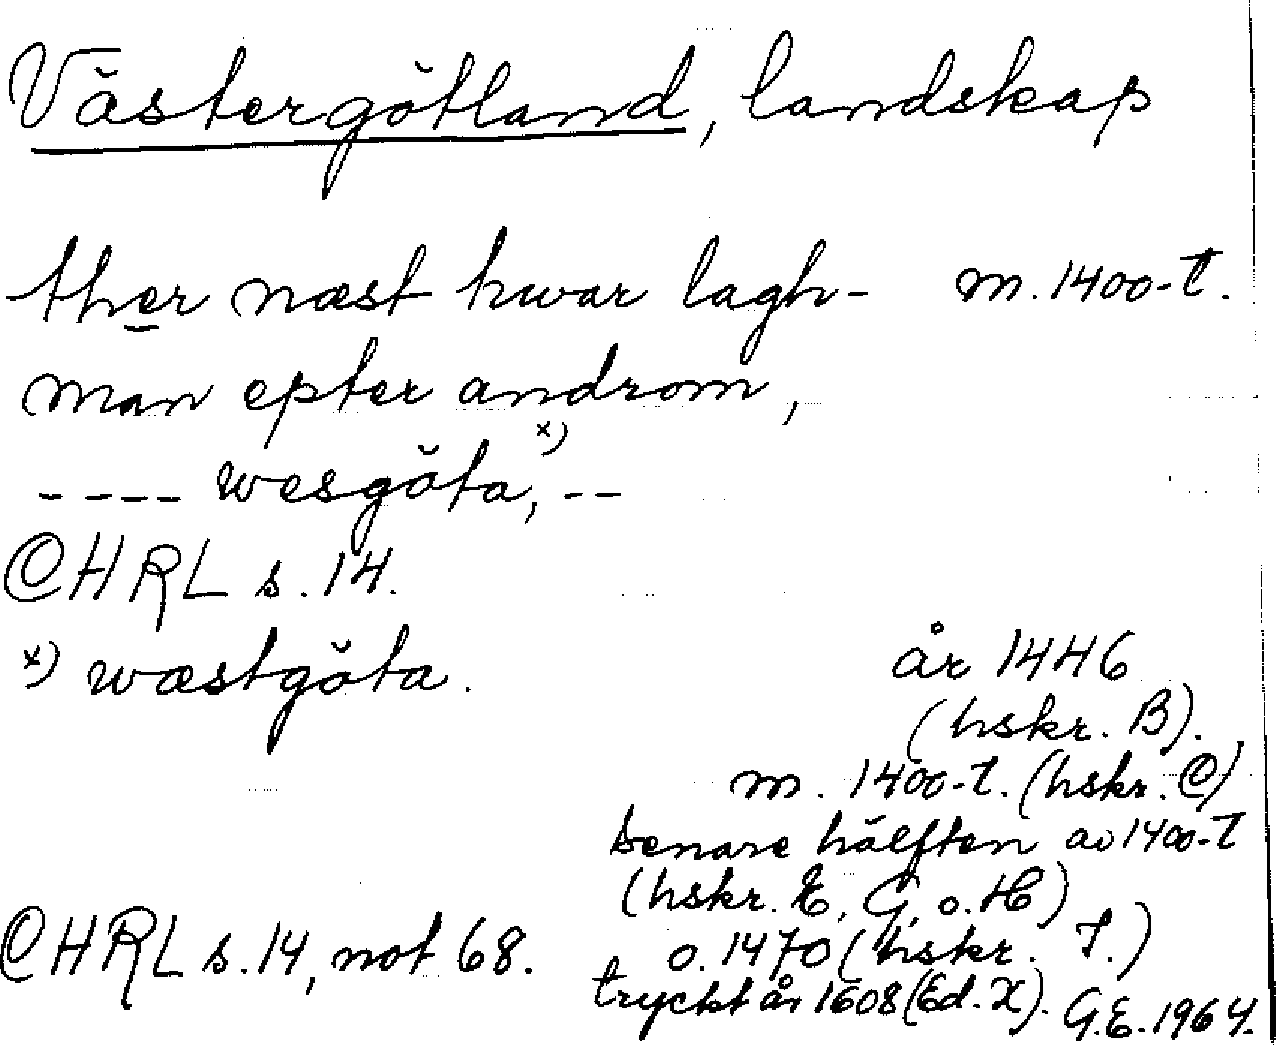 Västergötland, landskap
ther næst hwar lagh- m. 1400-t.
man epter androm,
---- wesgöta, x) --
CHRL s. 14.
x) wæstgöta. år 1446
(hskr. B).
m. 1400-t. (hskr. C)
senare hälften av 1400-t
(hskr. E, G, o. H)
CHRL s. 14, not 68. o. 1470 (hskr. I.)
tryckt år 1608 (Ed. X). G.E. 1964.